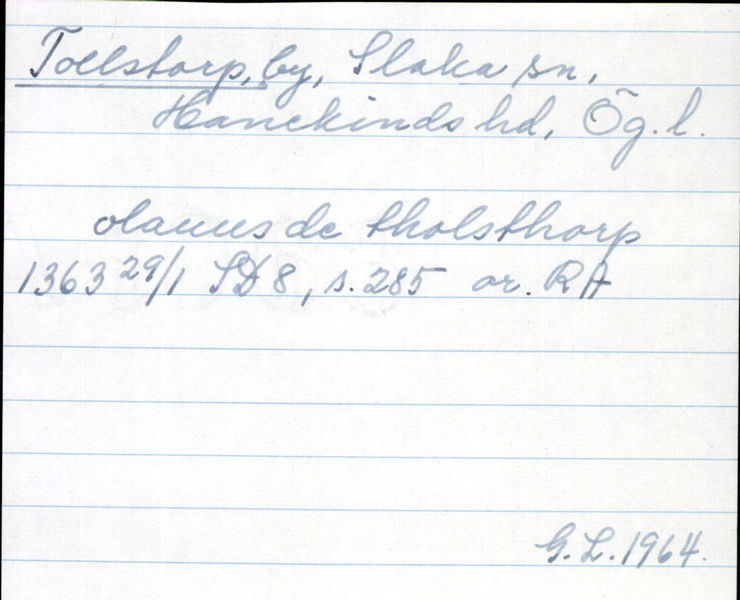 Tollstorp, by, Slaka sn,
Hanekinds hd, Ög. l.
olauus de tholsthorp
1363 29/1 SD 8, s. 285 or. RA
G. L. 1964.